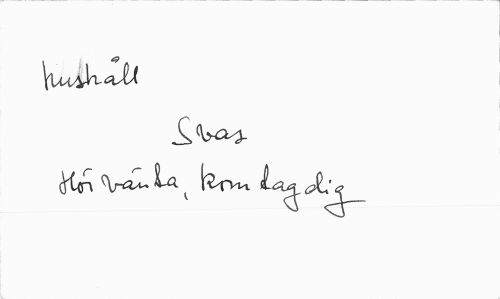 hushåll
Svar
Hör vänta, kom tag dig